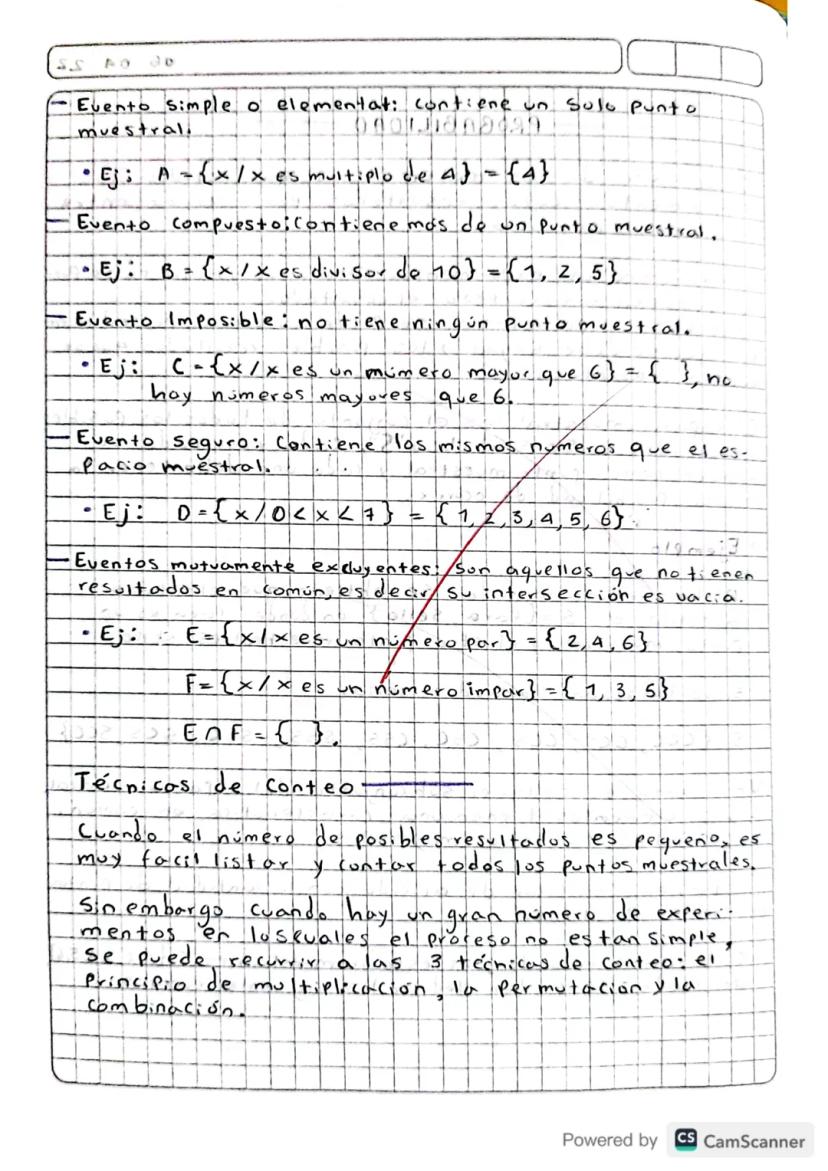 - Evento simple o elemental: contiene un solo punto
muestral.
• Ej: A = {x/x es multiplo de 4} = {4}
- Evento compuesto: contiene más de un punto muestral.
• Ej: B = {x/x es divisor de 10} = {1, 2, 5}
- Evento Imposible: no tiene ningún punto muestral.
• Ej: C = {x/x es un número mayor que 6} = { }, no
hay números mayores que 6.
- Evento seguro: Contiene los mismos números que el es-
pacio muestral.
• Ej: D = {x/0 < x < 7} = {1, 2, 3, 4, 5, 6}
- Eventos mutuamente excluyentes: son aquellos que no tienen
resultados en común, es decir su intersección es vacia.
• Ej: E = {x/x es un número par} = {2, 4, 6}
F = {x/x es un número impar} = {1, 3, 5}
E ∩ F = { }.
Técnicas de conteo
Cuando el número de posibles resultados es pequeño, es
muy facil listar y contar todos los puntos muestrales.
Sin embargo cuando hay un gran número de experi-
mentos en los cuales el proceso no es tan simple,
se puede recurrir a las 3 técnicas de conteo: el
principio de multiplicación, la permutación y la
combinación.
Powered by CS CamScanner